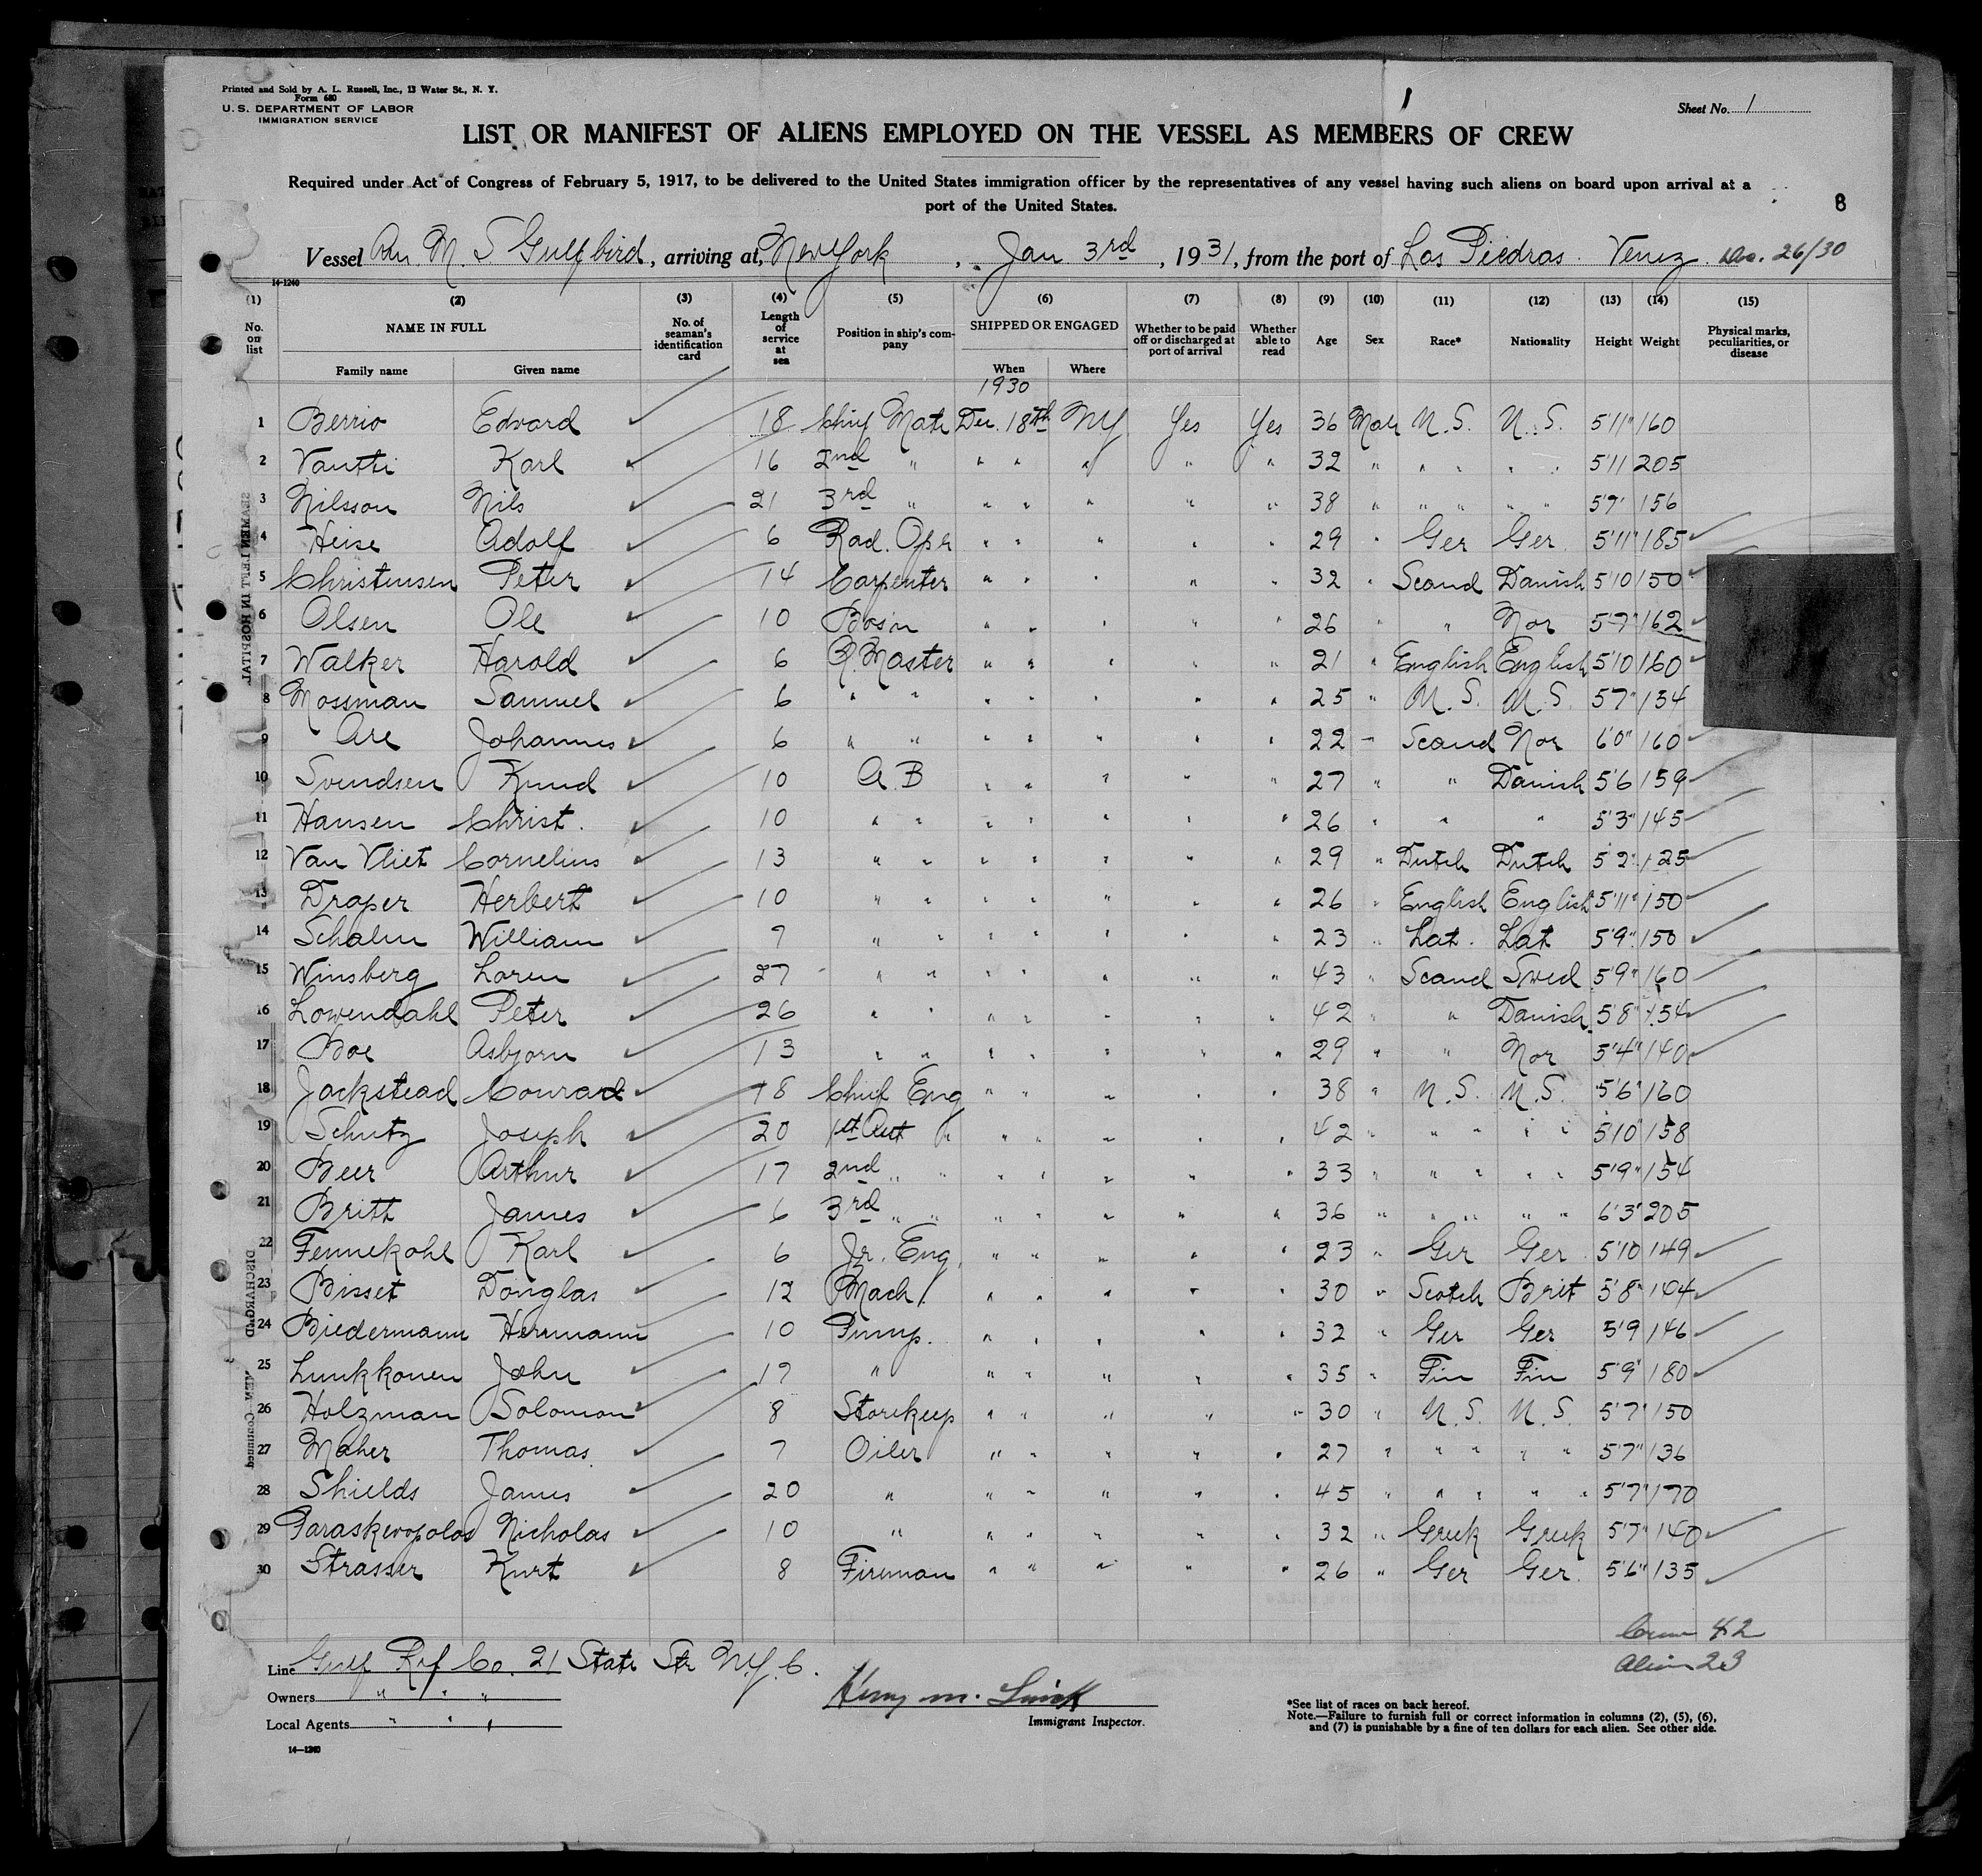 Printed and Sold by A. L. Russell, Inc., 13 Water St., N. Y.
Form 680
U. S. DEPARTMENT OF LABOR
IMMIGRATION SERVICE
1
Sheet No. 1
LIST OR MANIFEST OF ALIENS EMPLOYED ON THE VESSEL AS MEMBERS OF CREW
Required under Act of Congress of February 5, 1917, to be delivered to the United States immigration officer by the representatives of any vessel having such aliens on board upon arrival at a
port of the United States.
8
Vessel Am. M. S Gulfbird, arriving at, New York, Jan 3rd, 1931, from the port of Las Piedras Venez Dec. 26/30
14-1240
(1) (2) (3) (4) (5) (6) (7) (8) (9) (10) (11) (12) (13) (14) (15)
No. on list NAME IN FULL No. of seaman's identification card Length of service at sea Position in ship's company SHIPPED OR ENGAGED Whether to be paid off or discharged at port of arrival Whether able to read Age Sex Race* Nationality Height Weight Physical marks, peculiarities, or disease
Family name Given name When Where
1930
1 Berrio Edvard 18 Chief Mate Dec. 18th NY Yes Yes 36 Male U.S. U.S. 5'11" 160
2 Vantti Karl 16 2nd " " " " " " 32 " " " " " 5'11 205
3 Nilsson Nils 21 3rd " " " " " " 38 " " " " " 5'7' 156
4 Heise Adolf 6 Rad. Opr " " " " " 29 " Ger Ger 5'11" 185
5 Christensen Peter 14 Carpenter " " " " " 32 " Scand Danish 5'10 150
6 Olsen Ole 10 Bos'n " " " " " 26 " " Nor 5'7" 162
7 Walker Harold 6 Q. Master " " " " " 21 " English English 5'10 160
8 Mossman Samuel 6 " " " " " " " 25 " U.S. U.S. 5'7" 134
9 Are Johannes 6 " " " " " " " 22 " Scand Nor 6'0" 160
10 Svendsen Knud 10 A.B " " " " " 27 " " Danish 5'6 159
11 Hansen Christ. 10 " " " " " " " 26 " " " 5'3" 145
12 Van Vliet Cornelius 13 " " " " " " " 29 " Dutch Dutch 5'2" 125
13 Draper Herbert 10 " " " " " " " 26 " English English 5'11" 150
14 Schalin William 7 " " " " " " " 23 " Lat. Lat 5'9" 150
15 Winsberg Loren 27 " " " " " " " 43 " Scand Swed 5'9" 160
16 Lowendahl Peter 26 " " " " " " " 42 " " Danish 5'8" 154
17 Boe Asbjorn 13 " " " " " " " 29 " " Nor 5'4" 140
18 Jackstead Conrad 18 Chief Eng " " " " " 38 " U.S. U.S. 5'6" 160
19 Schutz Joseph 20 1st Ast " " " " " " 42 " " " " " 5'10" 158
20 Beer Arthur 17 2nd " " " " " " " 33 " " " " " 5'9" 154
21 Britt James 6 3rd " " " " " " " 36 " " " " " 6'3" 205
22 Fennekohl Karl 6 Jr. Eng. " " " " " 23 " Ger Ger 5'10 149
23 Bisset Douglas 12 Mach. " " " " " 30 " Scotch Brit 5'8"
24 Biedermann Hermann 10 Pump. " " " " " 32 " Ger Ger 5'9 146
25 Lunkkonen John 17 " " " " " " 35 " Fin Fin 5'9" 180
26 Holzman Solomon 8 Storekeep " " " " " 30 " U.S. U.S. 5'7" 150
27 Maher Thomas. 7 Oiler " " " " " 27 " " " " " 5'7" 136
28 Shields James 20 " " " " " " 45 " " " " " 5'7" 170
29 Paraskevopolos Nicholas 10 " " " " " " 32 " Greek Greek 5'7" 140
30 Strasser Kurt 8 Fireman " " " " " 26 " Ger Ger. 5'6" 135
SEAMEN LEFT IN HOSPITAL
DISCHARGED
MEN Continued
Crew 42
Alien 23
Line Gulf Ref Co. 21 State Str N.Y.C.
Owners " " "
Local Agents " " "
Henry M.
Immigrant Inspector.
*See list of races on back hereof.
Note.—Failure to furnish full or correct information in columns (2), (5), (6),
and (7) is punishable by a fine of ten dollars for each alien. See other side.
14-1240